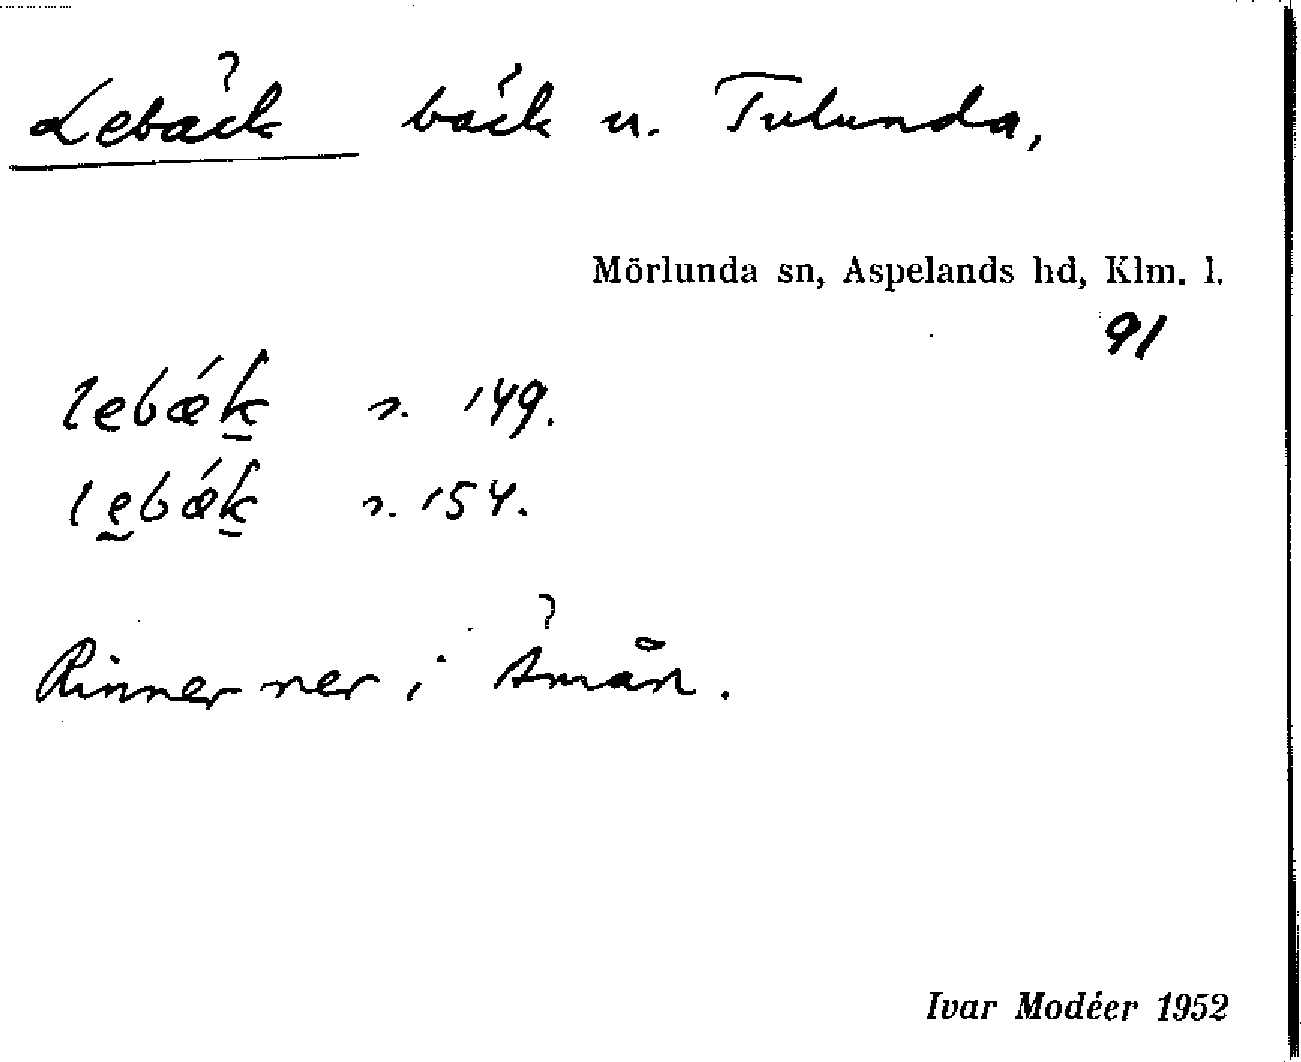 Lebäck bäck u. Tulunda,
Mörlunda sn, Aspelands hd, Klm. l.
91
lebǽk s. 149.
lebǽk s. 154.
Rinner ner i Åmån.
Ivar Modéer 1952